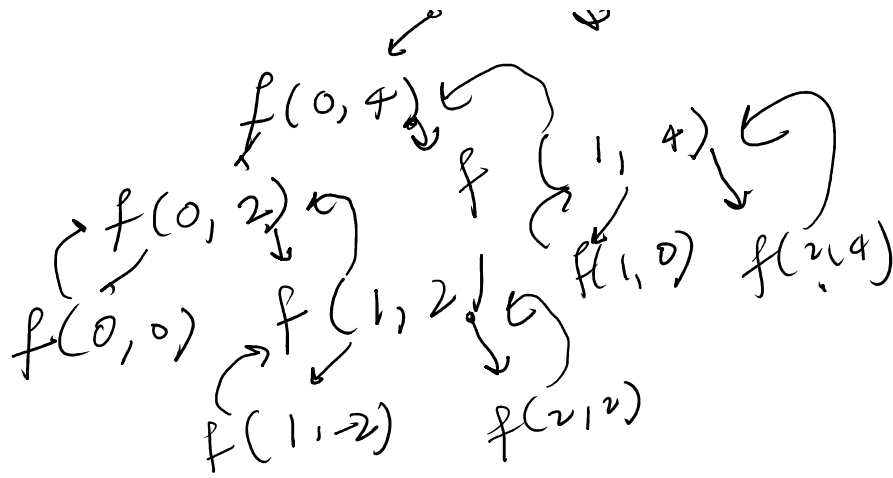 f(0, 4)
f(1, 4)
f(0, 2)
f(1, 0)
f(2, 4)
f(0, 0)
f(1, 2)
f(1, -2)
f(2, 2)